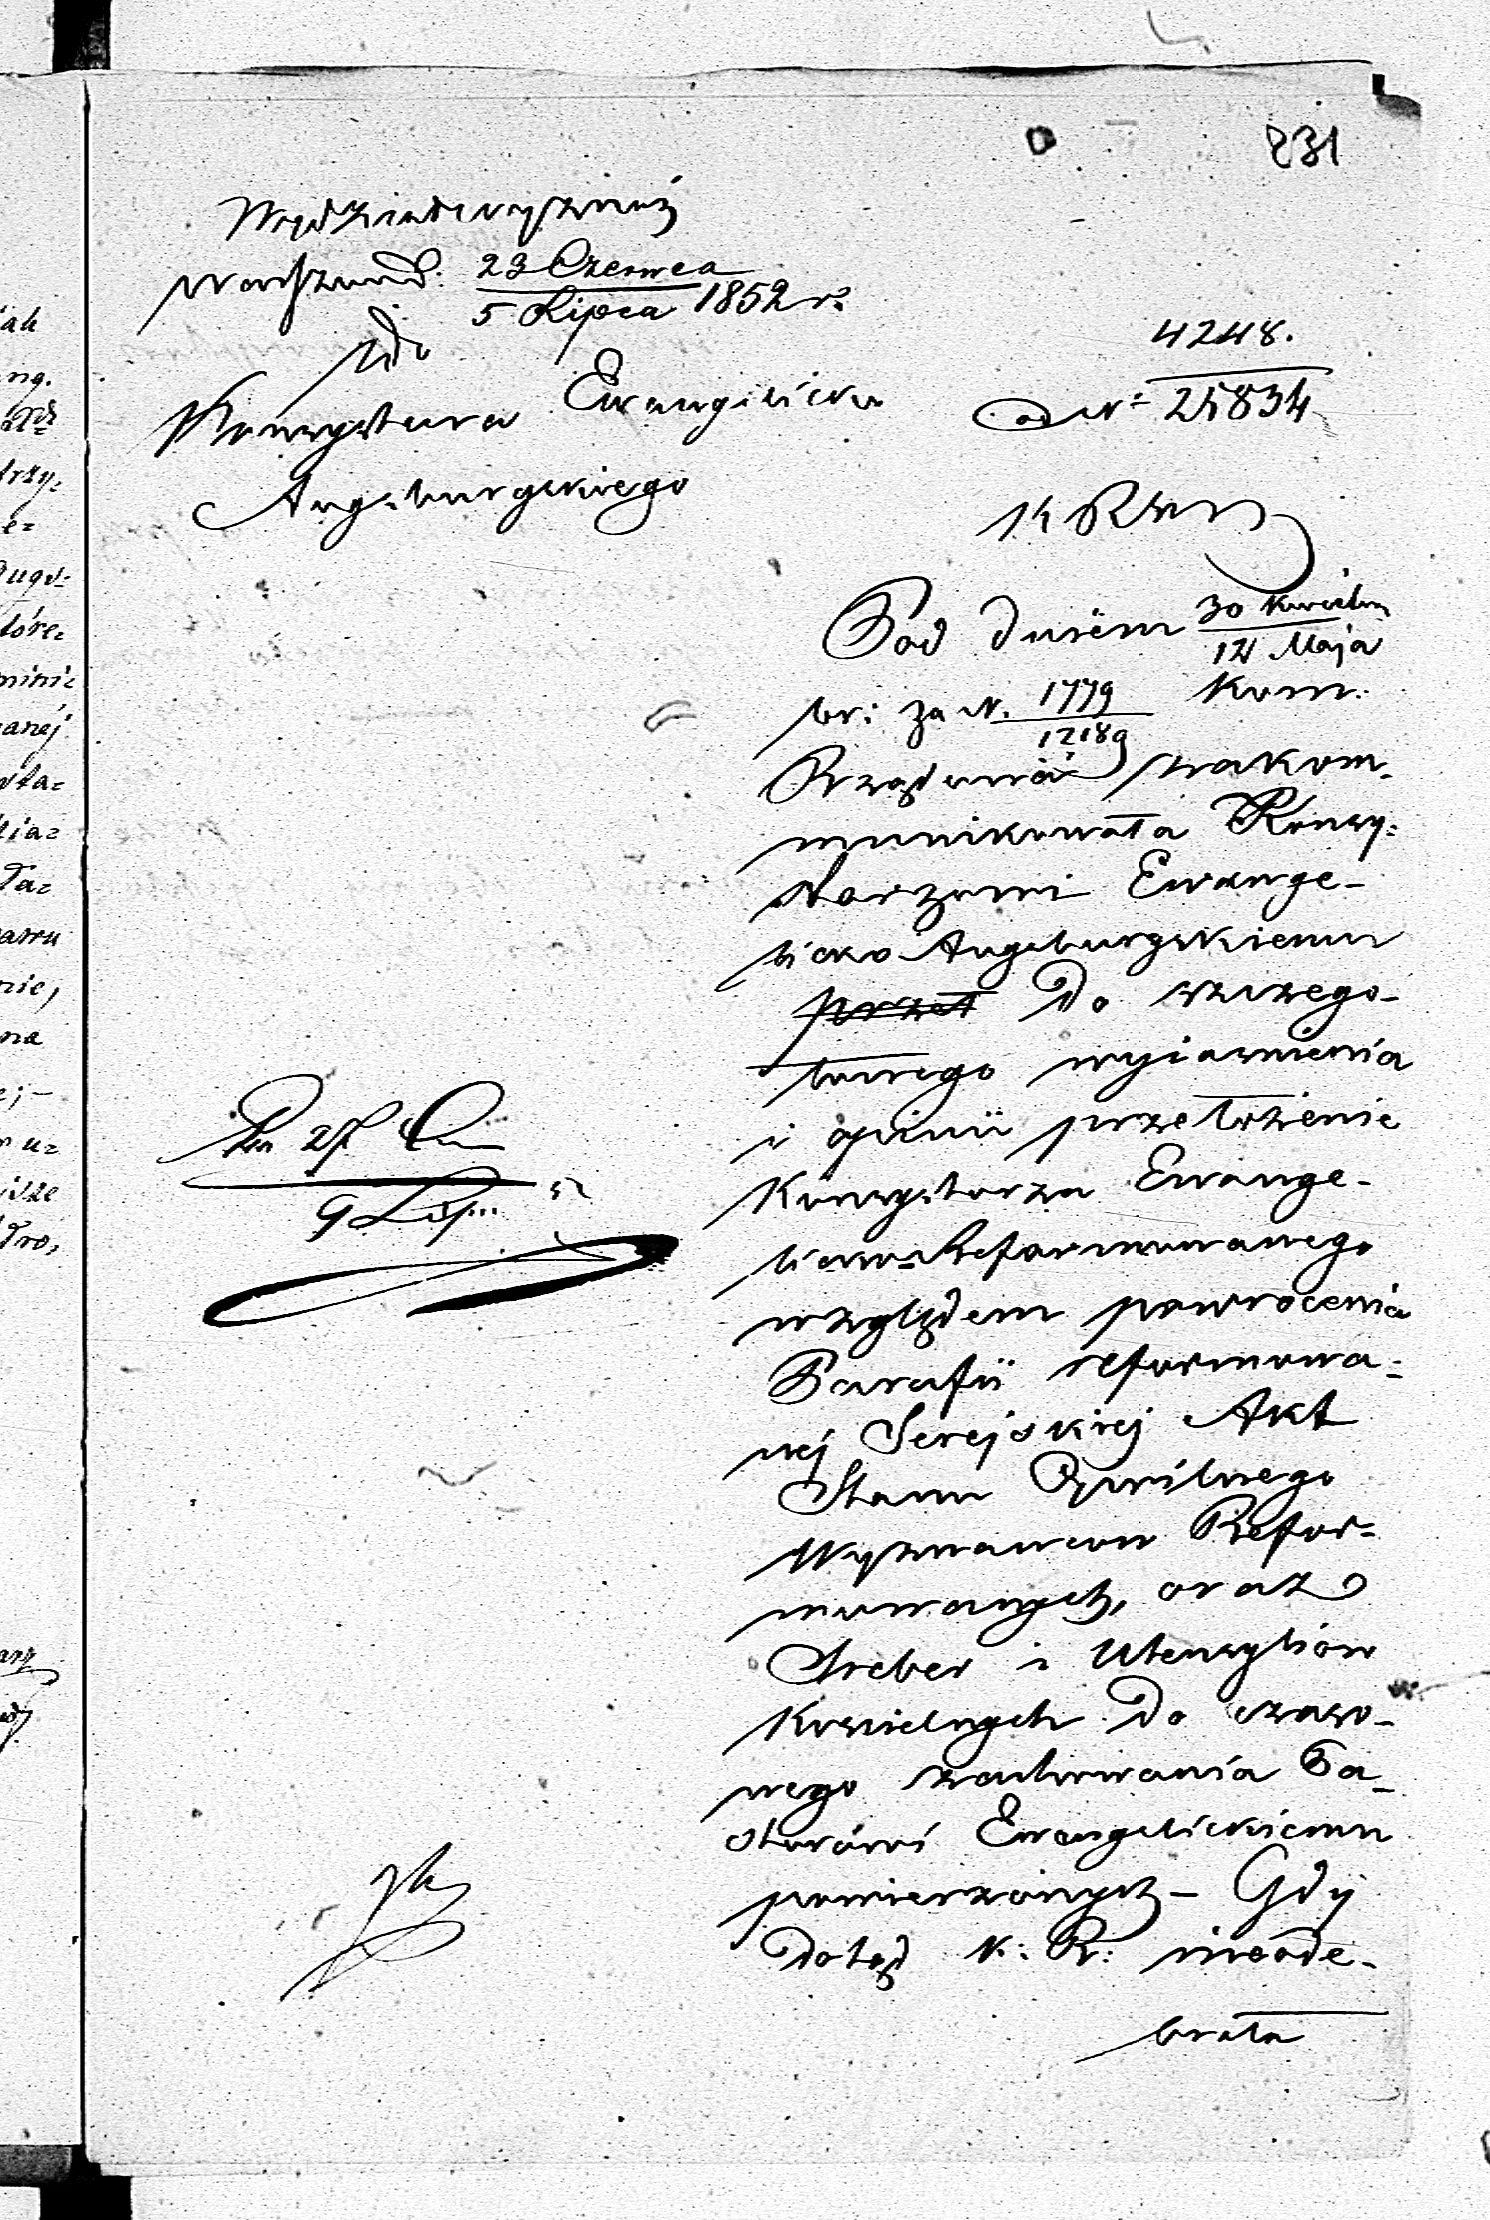 231
Wydział wyznań
Warszawa d. 23 Czerwca
5 Lipca 1852 r.
Do
Konsystorza Ewangelicko
Augsburgskiego
4248.
ad N: 25834
K R
Pod dniem 30 Kwietnia
12 Maja
br: za N. 1779 Kom:
12189
Rządowa zakom-
munikowała Konsy-
starzowi Ewange-
licko Augsburgskiemu
przeł do szczegó-
łowego wyjaśnienia
i opinii przełożenie
Konsystorza Ewange-
licko-Reformowanego
względem powrócenia
Parafii reformowa-
nej Serejskiej Akt
Stanu Cywilnego
Wyznawców Refor-
mowanych, oraz
Sreber i Utensyliów
Kościelnych do czaso-
wego zachowania Pa-
storowi Ewangelickiemu
powierzonych – Gdy
dotąd K: R: nieode-
brała
27 Cz
9 Lip